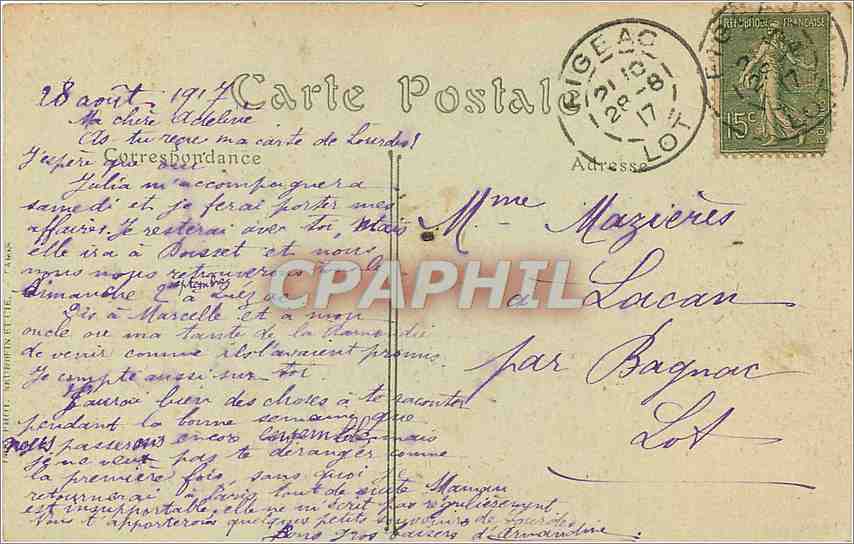 RÉPUBLIQUE FRANÇAISE
15c
FIGEAC
21 10
28-8
17
LOT
Carte Postale
Correspondance
Adresse
28 août 1917,
Ma chère Adeline
As tu reçue ma carte de Lourdes!
J'espère que oui
Julia m'accompagnera
samedi et je ferai porter mes
affaires. Je resterai avec toi, Mais
elle ira à Bousset et nous
nous nous retrouverons
dimanche septembre à
Dis à Marcelle et a mon
oncle ou ma tante de la
de venir comme ils l'avaient promis.
Je compte aussi sur toi.
J'aurai bien des choses à te raconter
pendant la bonne semaine que
nous passerons encore ensemble mais
je ne veut pas te déranger comme
la première fois, sans quoi je
retournerai à Paris tout de suite Maman
est insupportable, elle ne m'écrit pas régulièrement
t'apporterai quelques petits souvenirs de Lourdes
Bons gros baisers d'Armandine.
Mme Mazières
à Lacan
par Bagnac
Lot
CPAPHIL